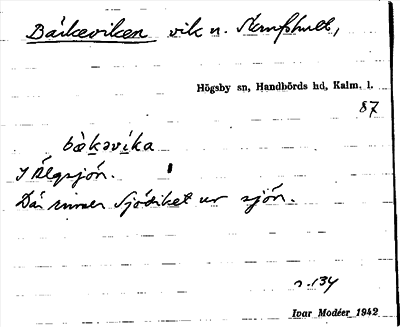 Bäckeviken vik n. Kamphult,
Högsby sn, Handbörds hd, Kalm. l.
87
bækəvíka
I Älgsjön.
Där rinner Sjödiket ur sjön.
s. 134
Ivar Modéer 1942